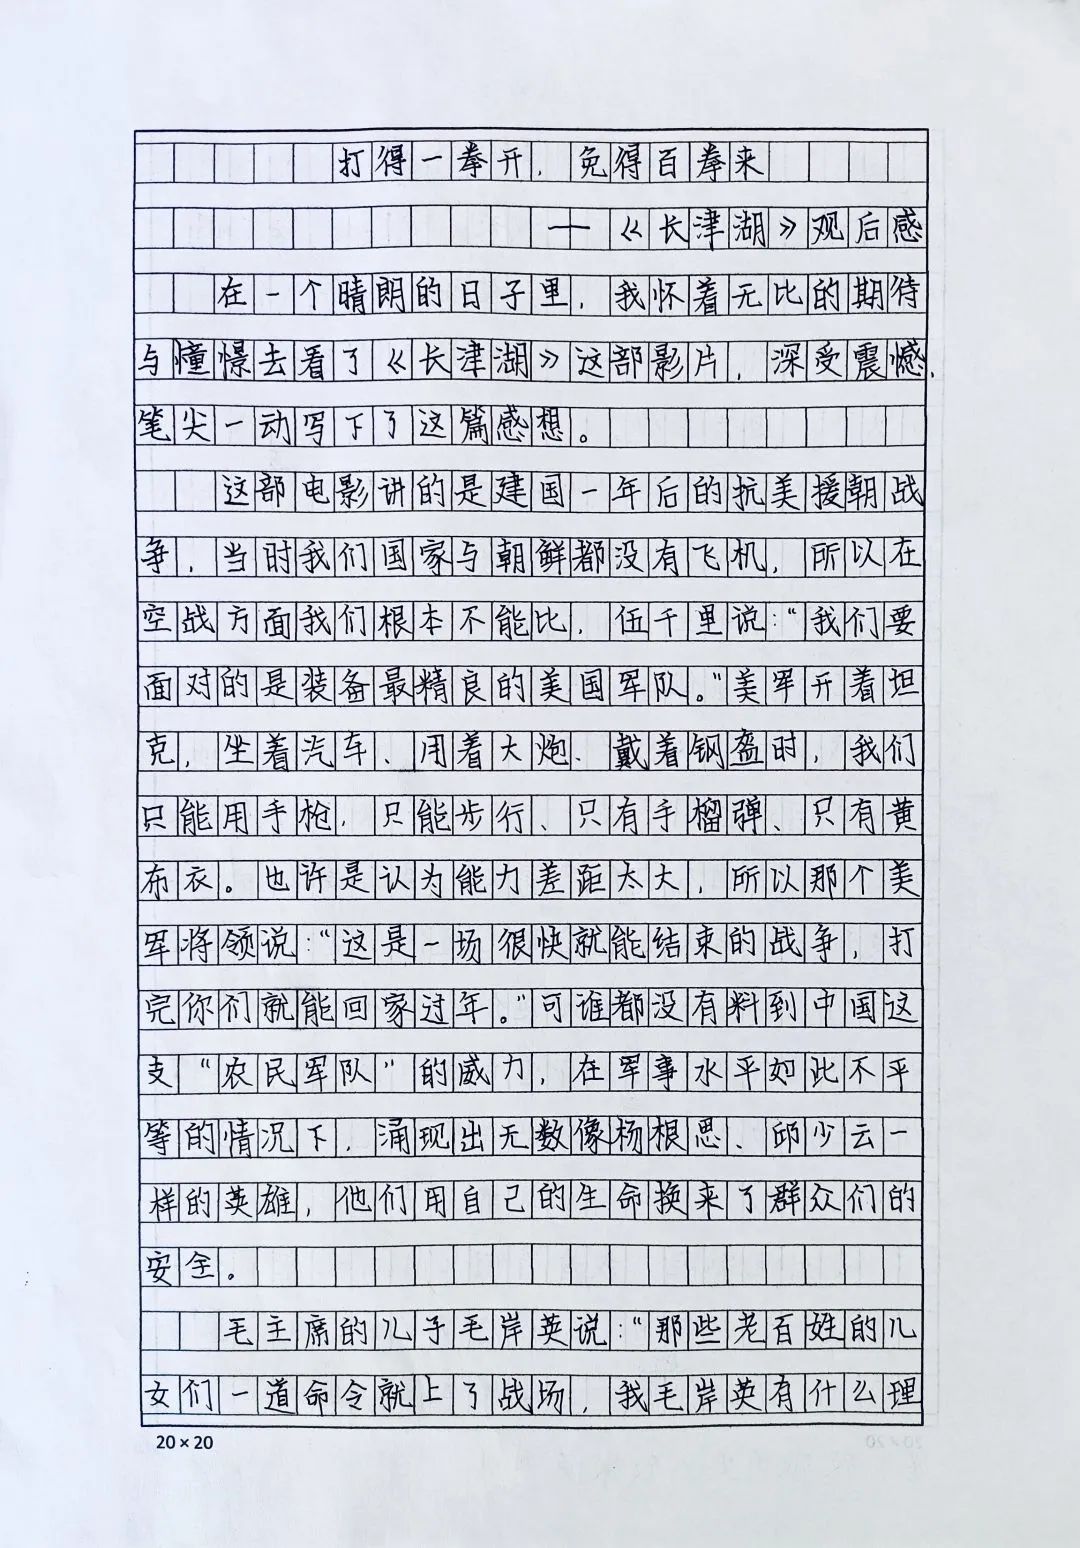 打得一拳开，免得百拳来
——《长津湖》观后感
在一个晴朗的日子里，我怀着无比的期待
与憧憬去看了《长津湖》这部影片，深受震憾，
笔尖一动写下了这篇感想。
这部电影讲的是建国一年后的抗美援朝战
争，当时我们国家与朝鲜都没有飞机，所以在
空战方面我们根本不能比，伍千里说：“我们要
面对的是装备最精良的美国军队。”美军开着坦
克，坐着汽车、用着大炮、戴着钢盔时，我们
只能用手枪，只能步行、只有手榴弹、只有黄
布衣。也许是认为能力差距太大，所以那个美
军将领说：“这是一场很快就能结束的战争，打
完你们就能回家过年。”可谁都没有料到中国这
支“农民军队”的威力，在军事水平如此不平
等的情况下，涌现出无数像杨根思、邱少云一
样的英雄，他们用自己的生命换来了群众们的
安全。
毛主席的儿子毛岸英说：“那些老百姓的儿
女们一道命令就上了战场，我毛岸英有什么理
20×20